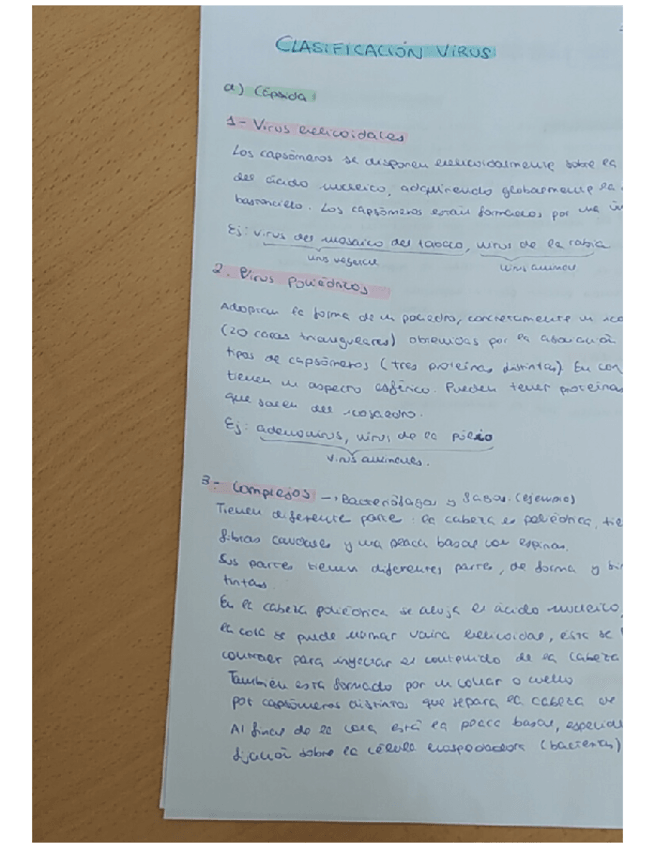 CLASIFICACIÓN VIRUS
a) Cápsida
1- Virus helicoidales
Los capsómeros se disponen helicoidalmente sobre la
del ácido nucleico, adquiriendo globalmente la
bastoncillo. Los capsómeros están formados por una
Ej: virus del mosaico del tabaco, virus de la rabia
virus vegetal virus animal
2. Virus poliédricos
Adoptan la forma de un poliedro, concretamente un
(20 caras triangulares) obtenidas por la asociación
tipos de capsómeros (tres proteínas distintas). En
tienen un aspecto esférico. Pueden tener proteínas
que salen del icosaedro.
Ej: adenovirus, virus de la polio
virus animales.
3- Complejos → Bacteriófagos y fagos. (ejemplo)
Tienen diferente parte. La cabeza es poliédrica,
fibras caudales y una placa basal con espinas.
Sus partes tienen diferentes partes, de forma y
tintas.
En la cabeza poliédrica se aloja el ácido nucleico,
la cola se puede llamar vaina helicoidal, esta se
contraer para inyectar el contenido de la cabeza
También está formado por un collar o cuello
por capsómeros distintos que separa la cabeza de
Al final de la cola está la placa basal,
fijación sobre la célula hospedadora (bacterias)